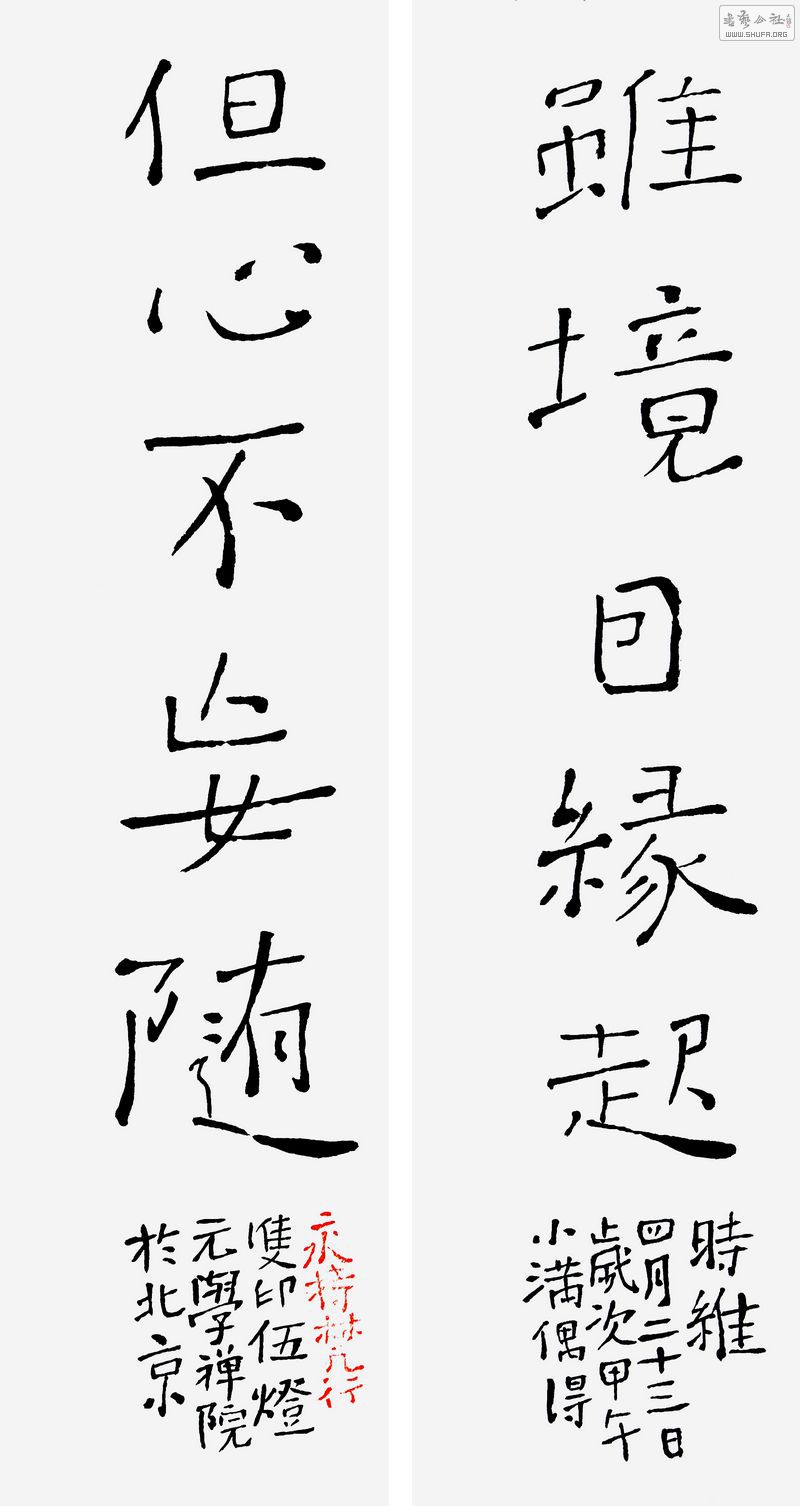 書藝公社
WWW.SHUFA.ORG
雖境囙緣起
時維
四月二十三日
歲次甲午
小満偶得
但心不妄隨
永持
雙印伍燈
元學禅院
於北京